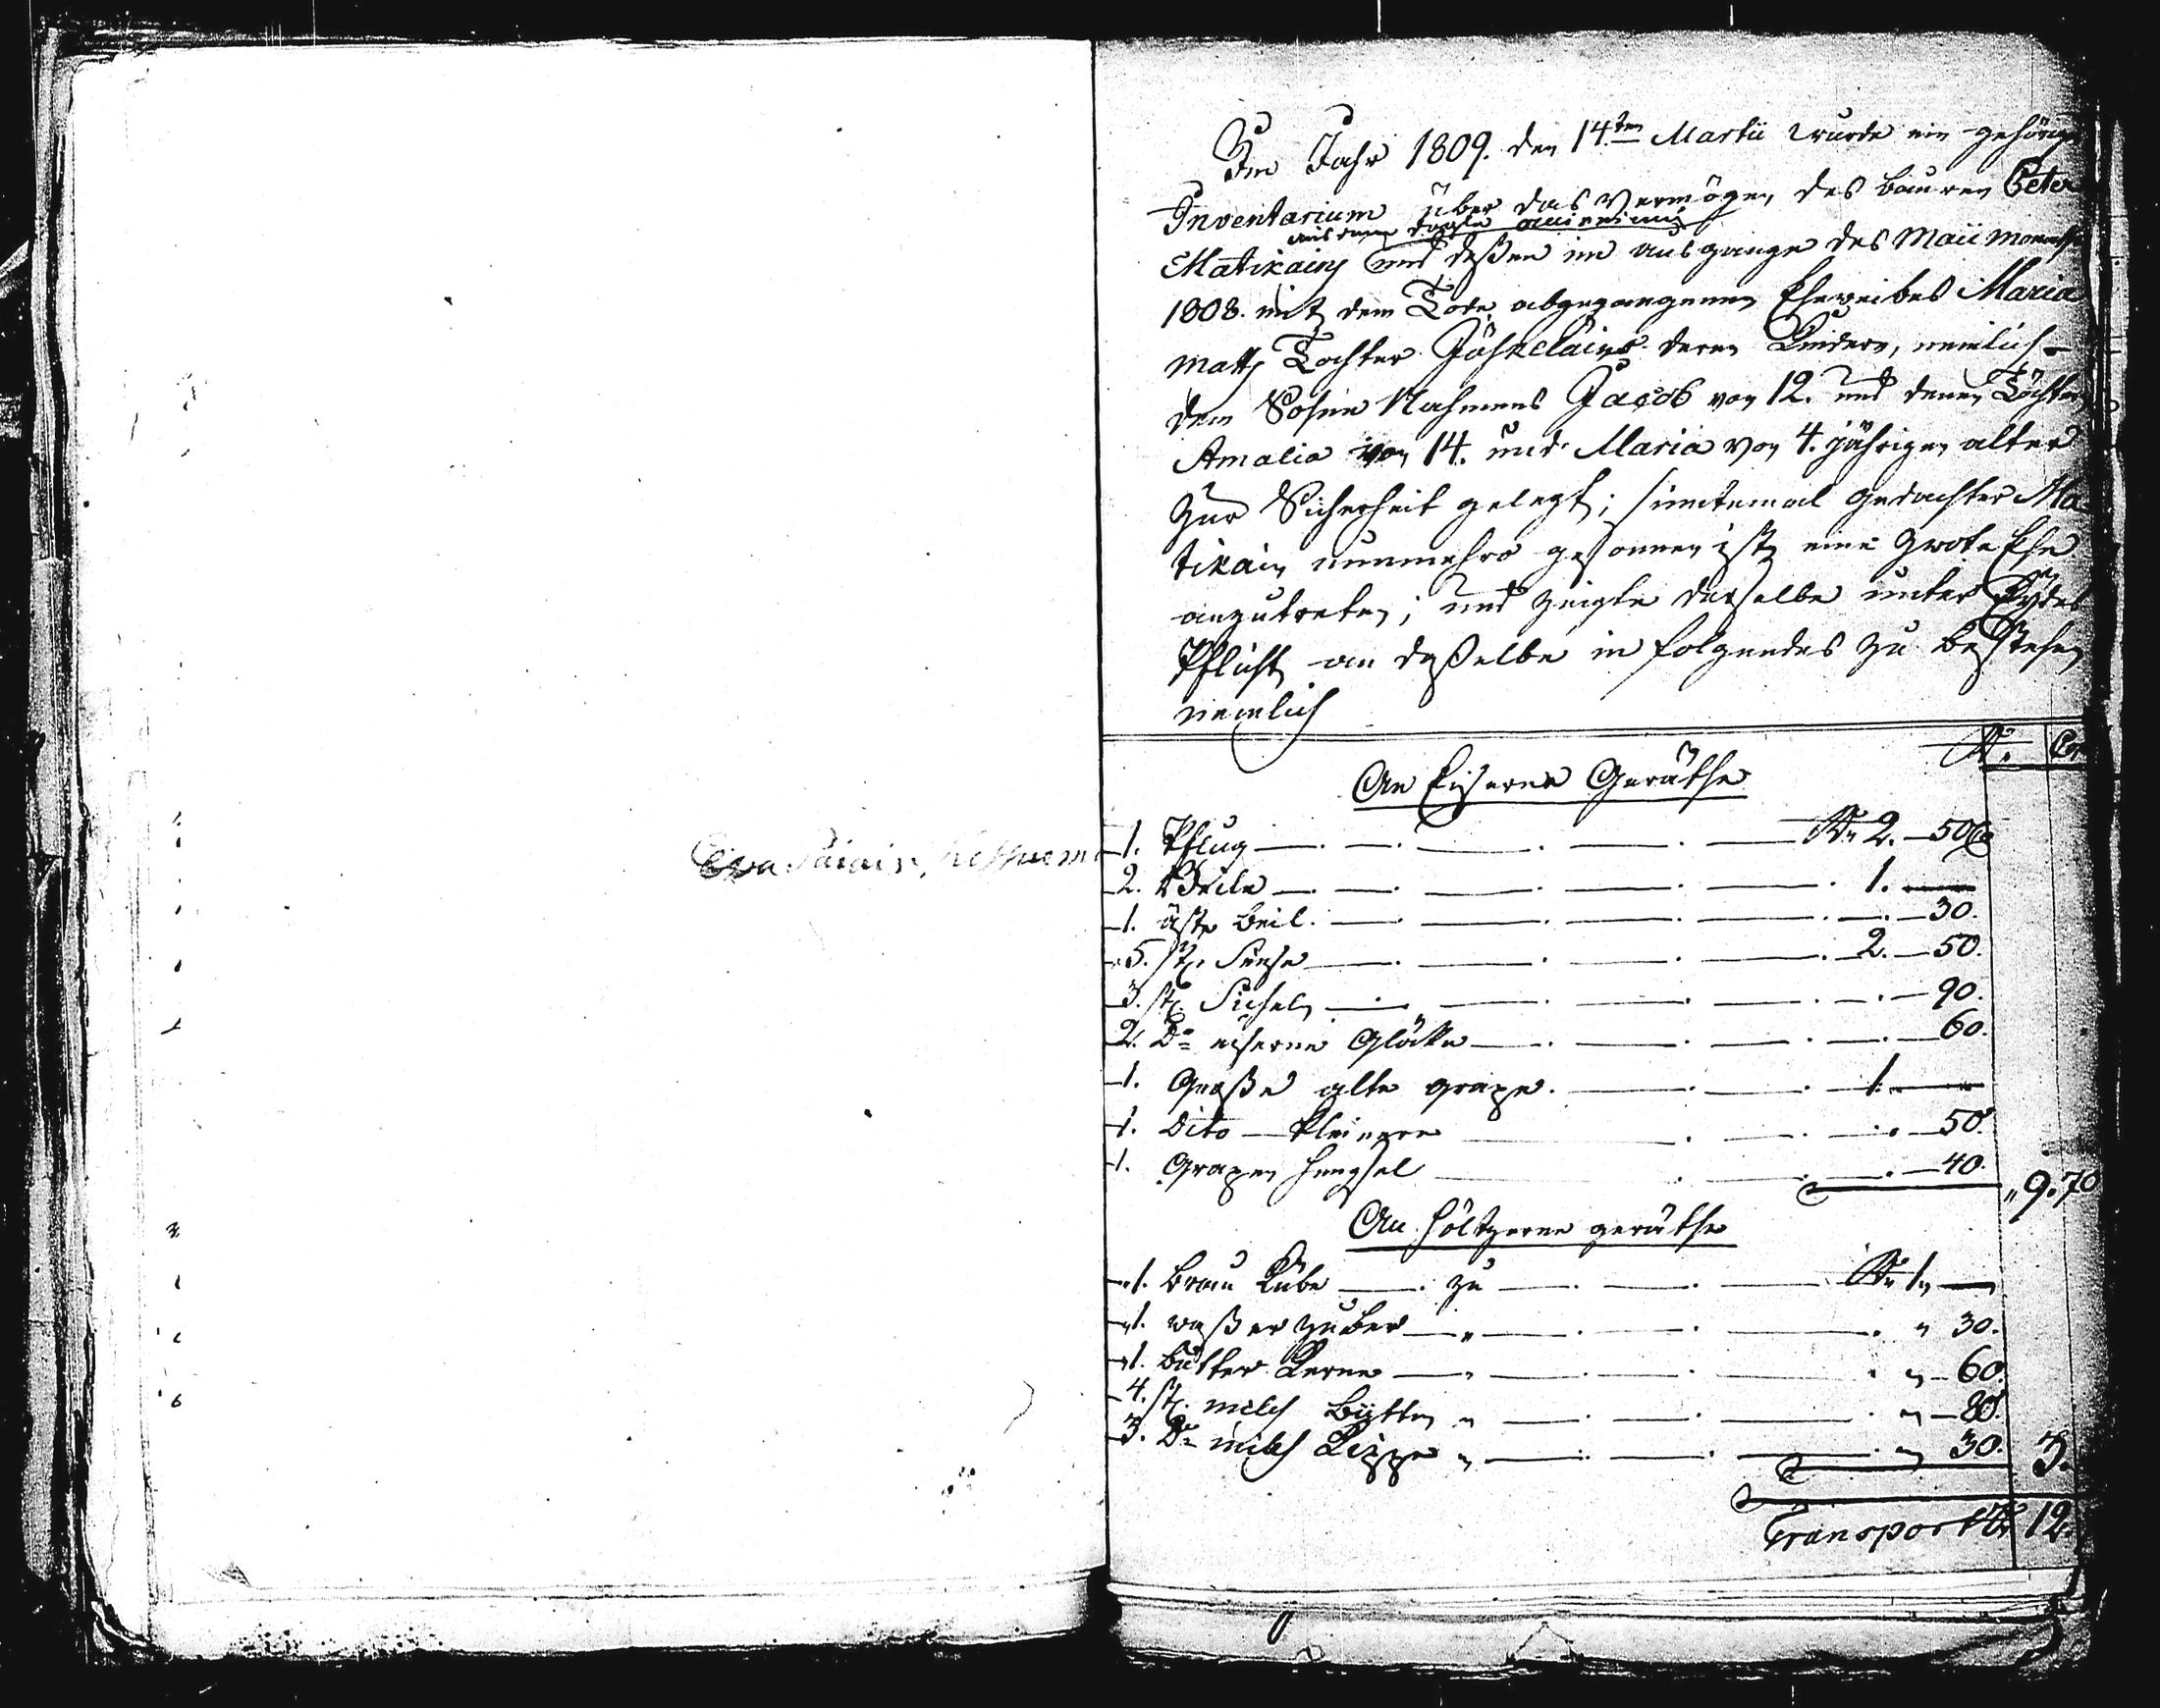 Im Jahr 1809. den 14ten Martii wurde ein gehörige
Inventarium über das Vermögen des bauren Peter
aus dem
Matikain und deßen im ausgange des Maii Monaths
1808. mit dem Tode abgegangenen Eheweibes Maria
Matts Tochter Jäskelains deren Kindern, nemlich
dem Sohne Nahmens Jacob von 12. und denen Töchter
Amalia von 14. und Maria von 4. jährigen alter
zur Sicherheit gelegt; sintemal gedachter Ma
tikain nunmehro gesonnen ist, eine zwote Ehe
anzutreten; und zeigte derselbe unter Eydes
Pflicht an daßelbe in folgendes zu bestehen
nemlich
R. Cop
An Eiserne Geräthe
1. Pflug — R. 2. — 50 C
2. Beile — 1. —
1. äste beil. — 30.
5. st. Sense — 2. — 50.
3. st. Sicheln — 90.
2. Do eiserne Glöcke — 60.
1. Große alte grape. — 1. —
1. Dito — kleinere — 50.
1. Grapen hengsel — 40.
" 9. 70
An höltzerne geräthe
1. brau Kube — zu — R. 1 " —
1. waßer zuber — " — " 30.
1. butter Kerne — " — 60.
4. st. milch bütten " — 80.
3. Do milch " — 30.
3.
Transport R 12
Eva